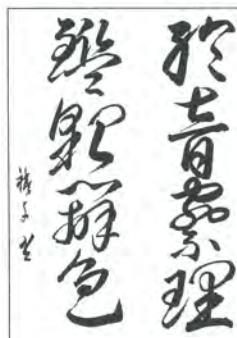 聆音察理
鑑貌辨色